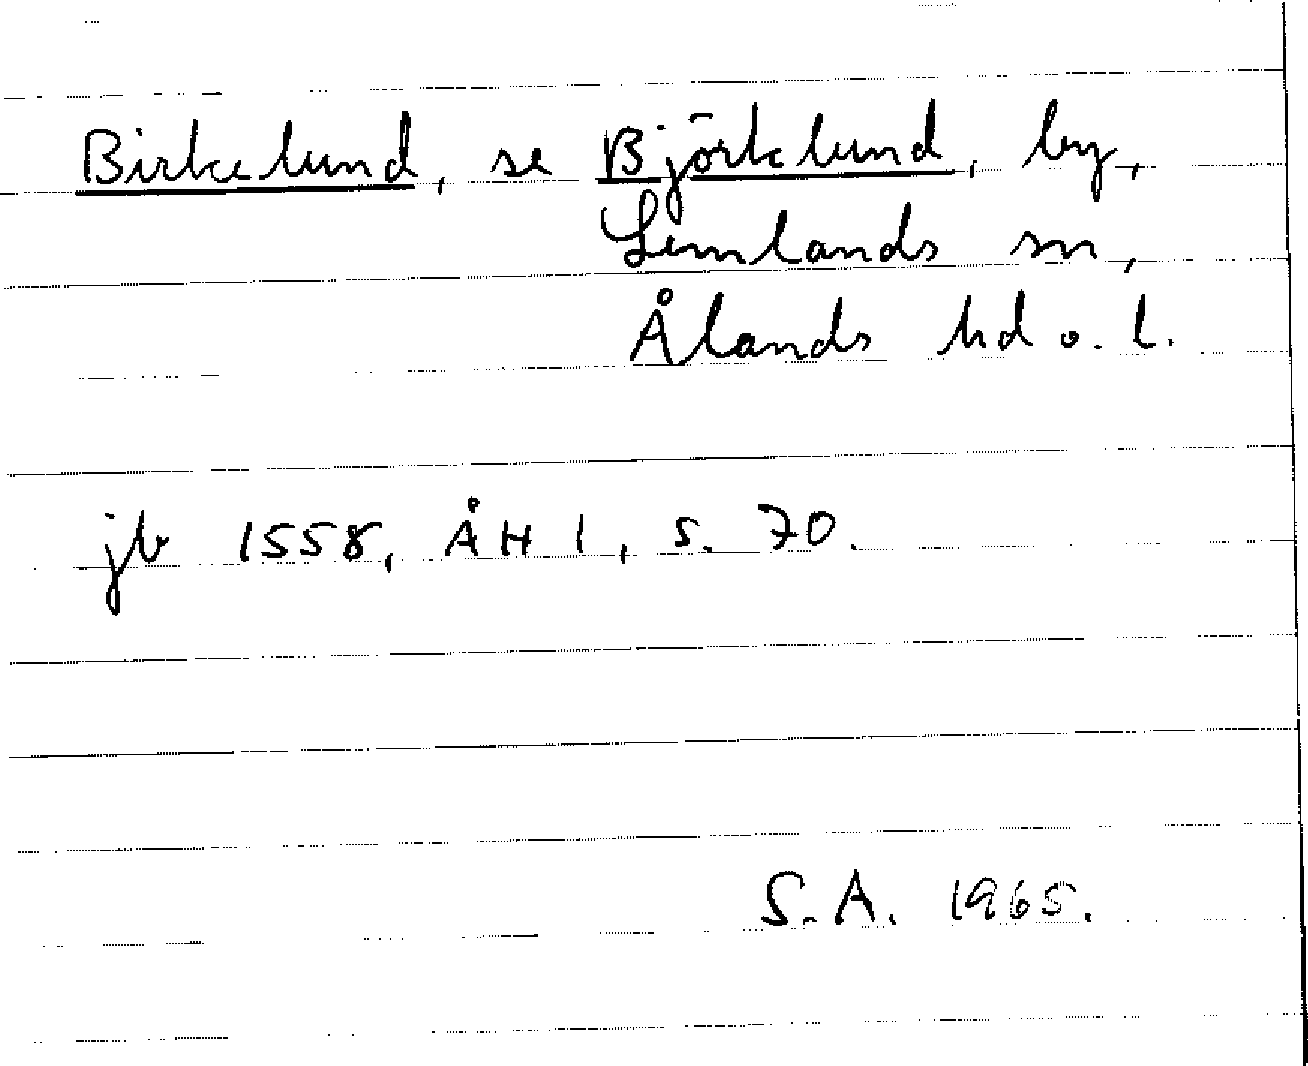 Birkelund, se Björklund, by,
Lemlands sn,
Ålands hd o. l.
jb 1558, ÅH 1, s. 70.
S.A. 1965.